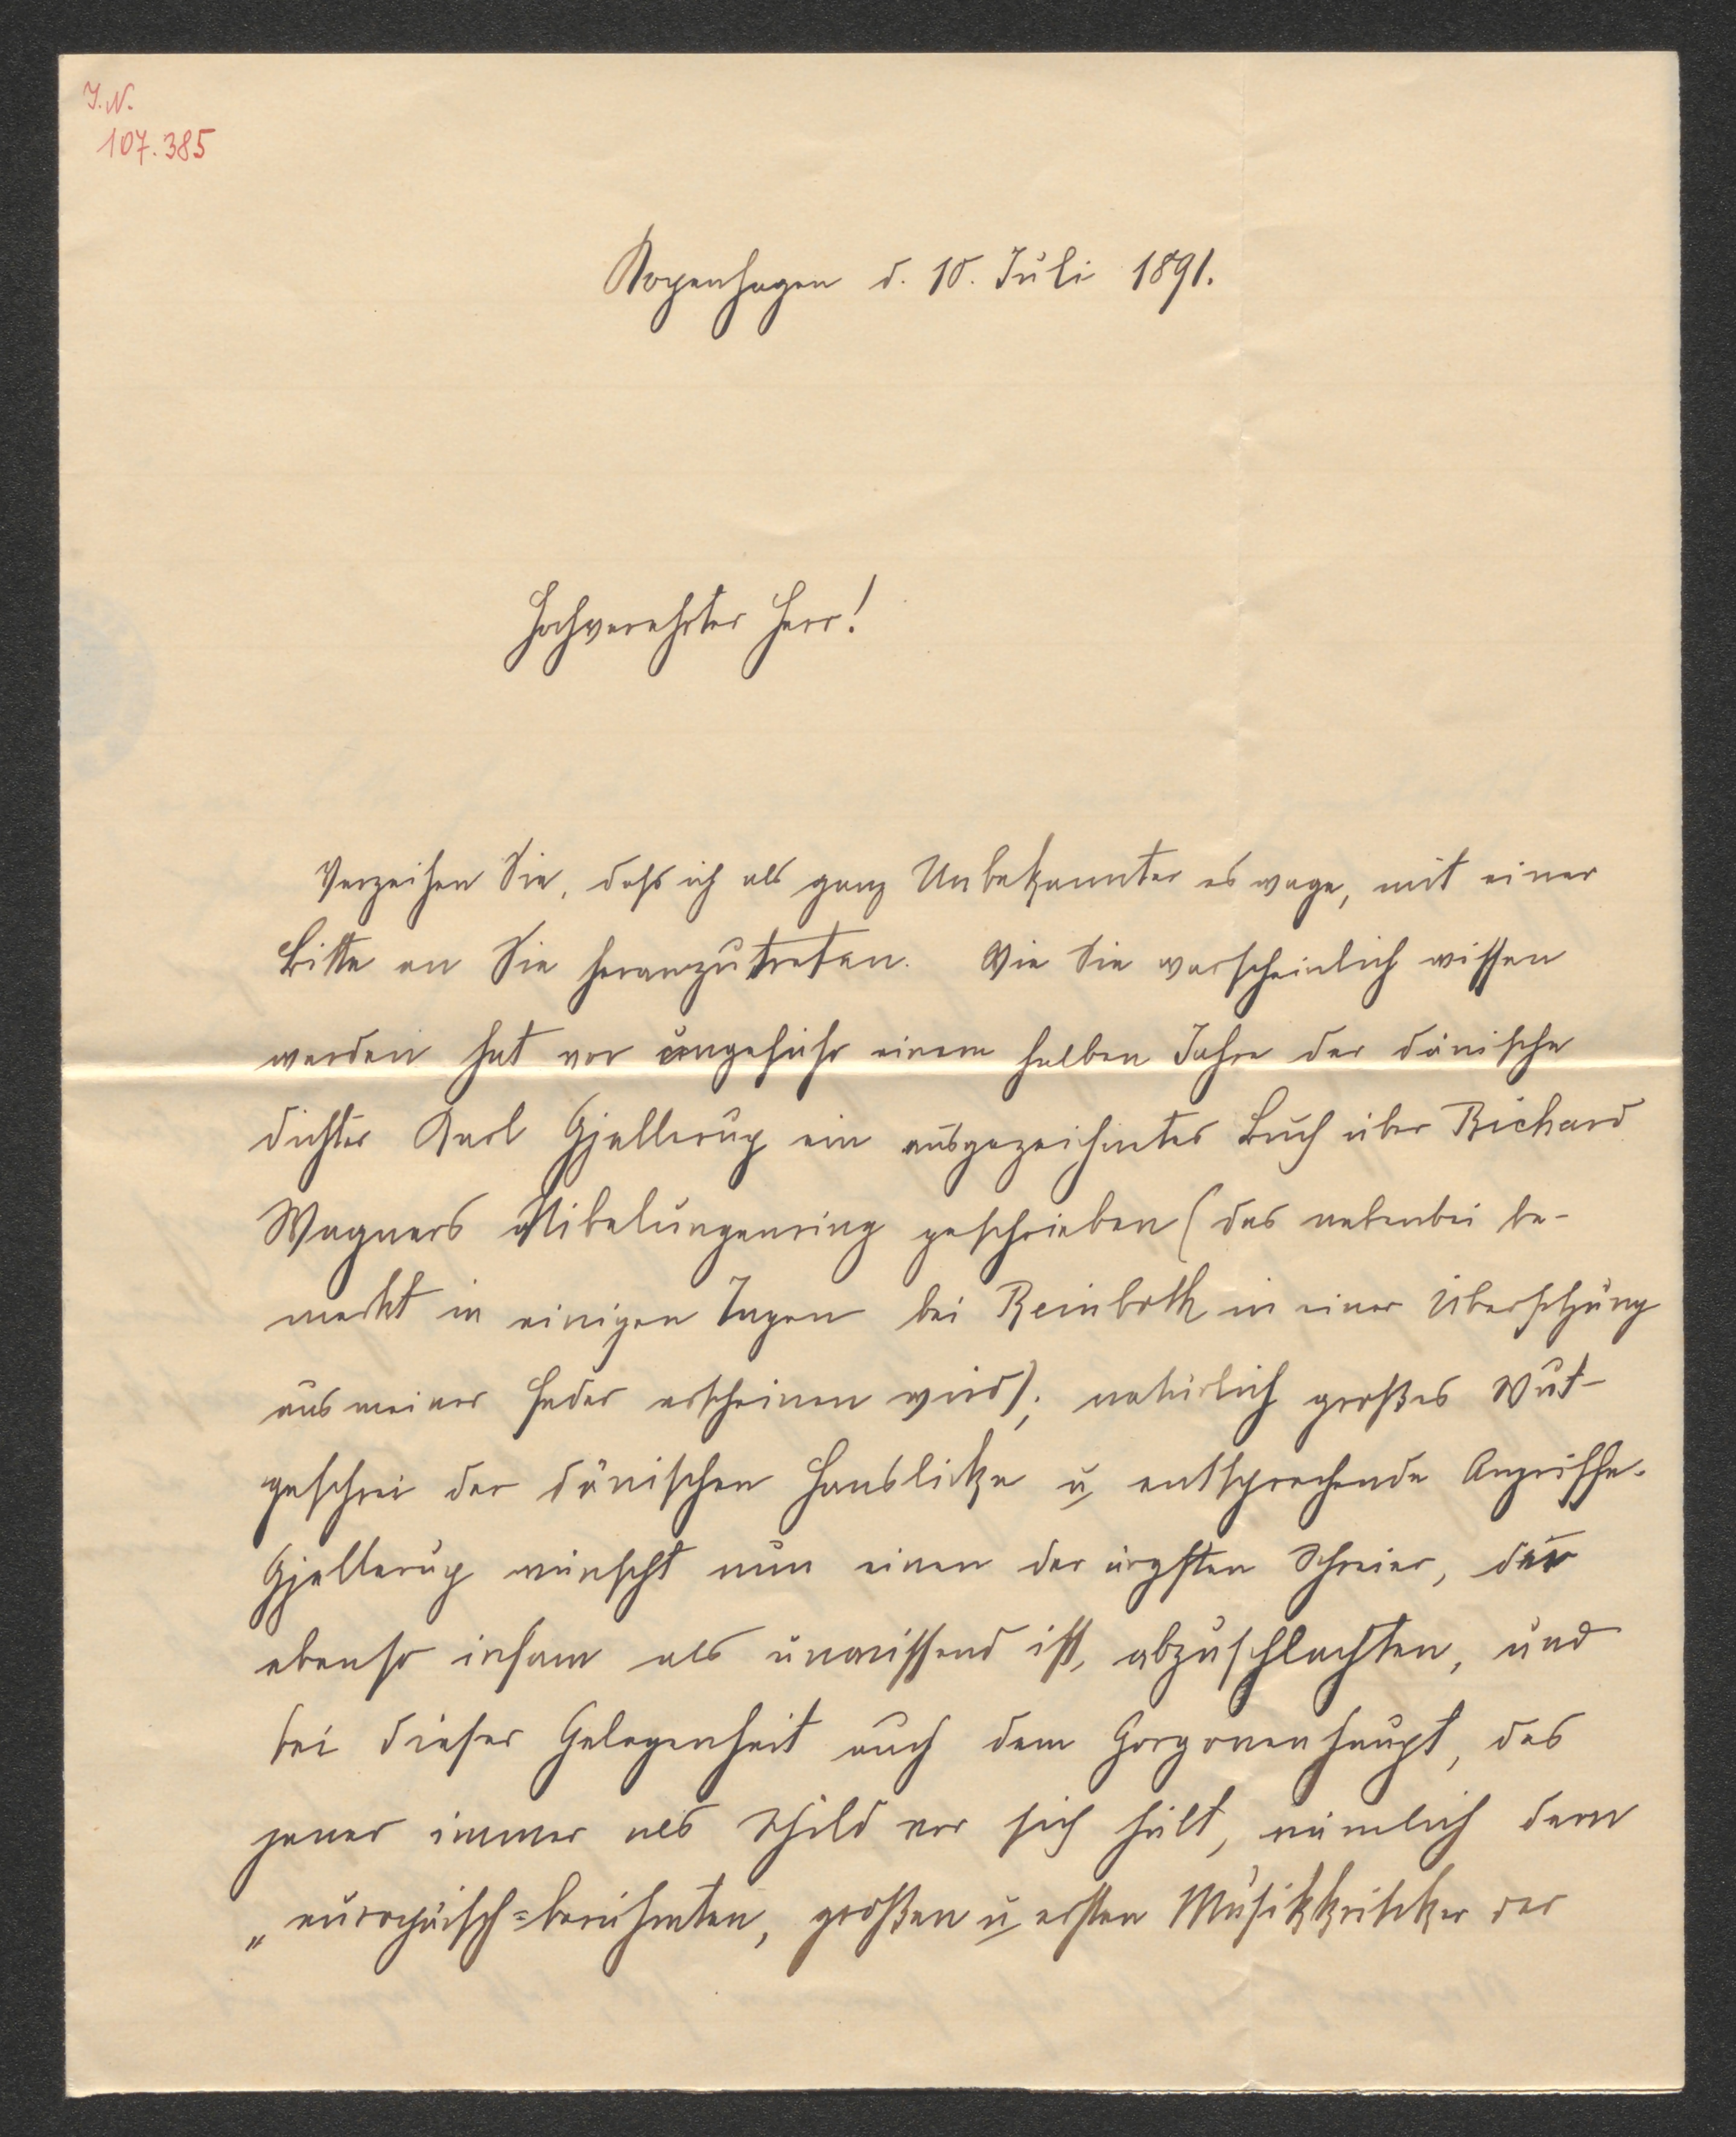 J.N.
107.385
Kopenhagen d. 10. Juli 1891.
Hochverehrter Herr!
Verzeihen Sie, daſs ich als ganz Unbekannter es wage, mit einer
Bitte an Sie heranzutreten. Wie Sie warscheinlich wissen
werden hat vor ungefähr einem halben Jahre der dänische
Dichter Karl Gjellerup ein ausgezeichnetes Buch über Richard
Wagners Nibelungenring geschrieben (das nebenbei be-
merkt in einigen Tagen bei Reinboth in einer Übersetzung
aus meiner Feder erscheinen wird); natürlich großes Wut-
geschrei der dänischen Hanslicke u. entsprechende Angriffe.
Gjellerup wünscht nun einen der ärgsten Schreier, der
ebenso infam als unwissend ist, abzuschlachten, und
bei dieser Gelegenheit auch dem Gorgonenhaupt, das
jener immer als Schild vor sich hält, nämlich dem
„europäisch=berühmten, großen u. ersten Musikkritiker der